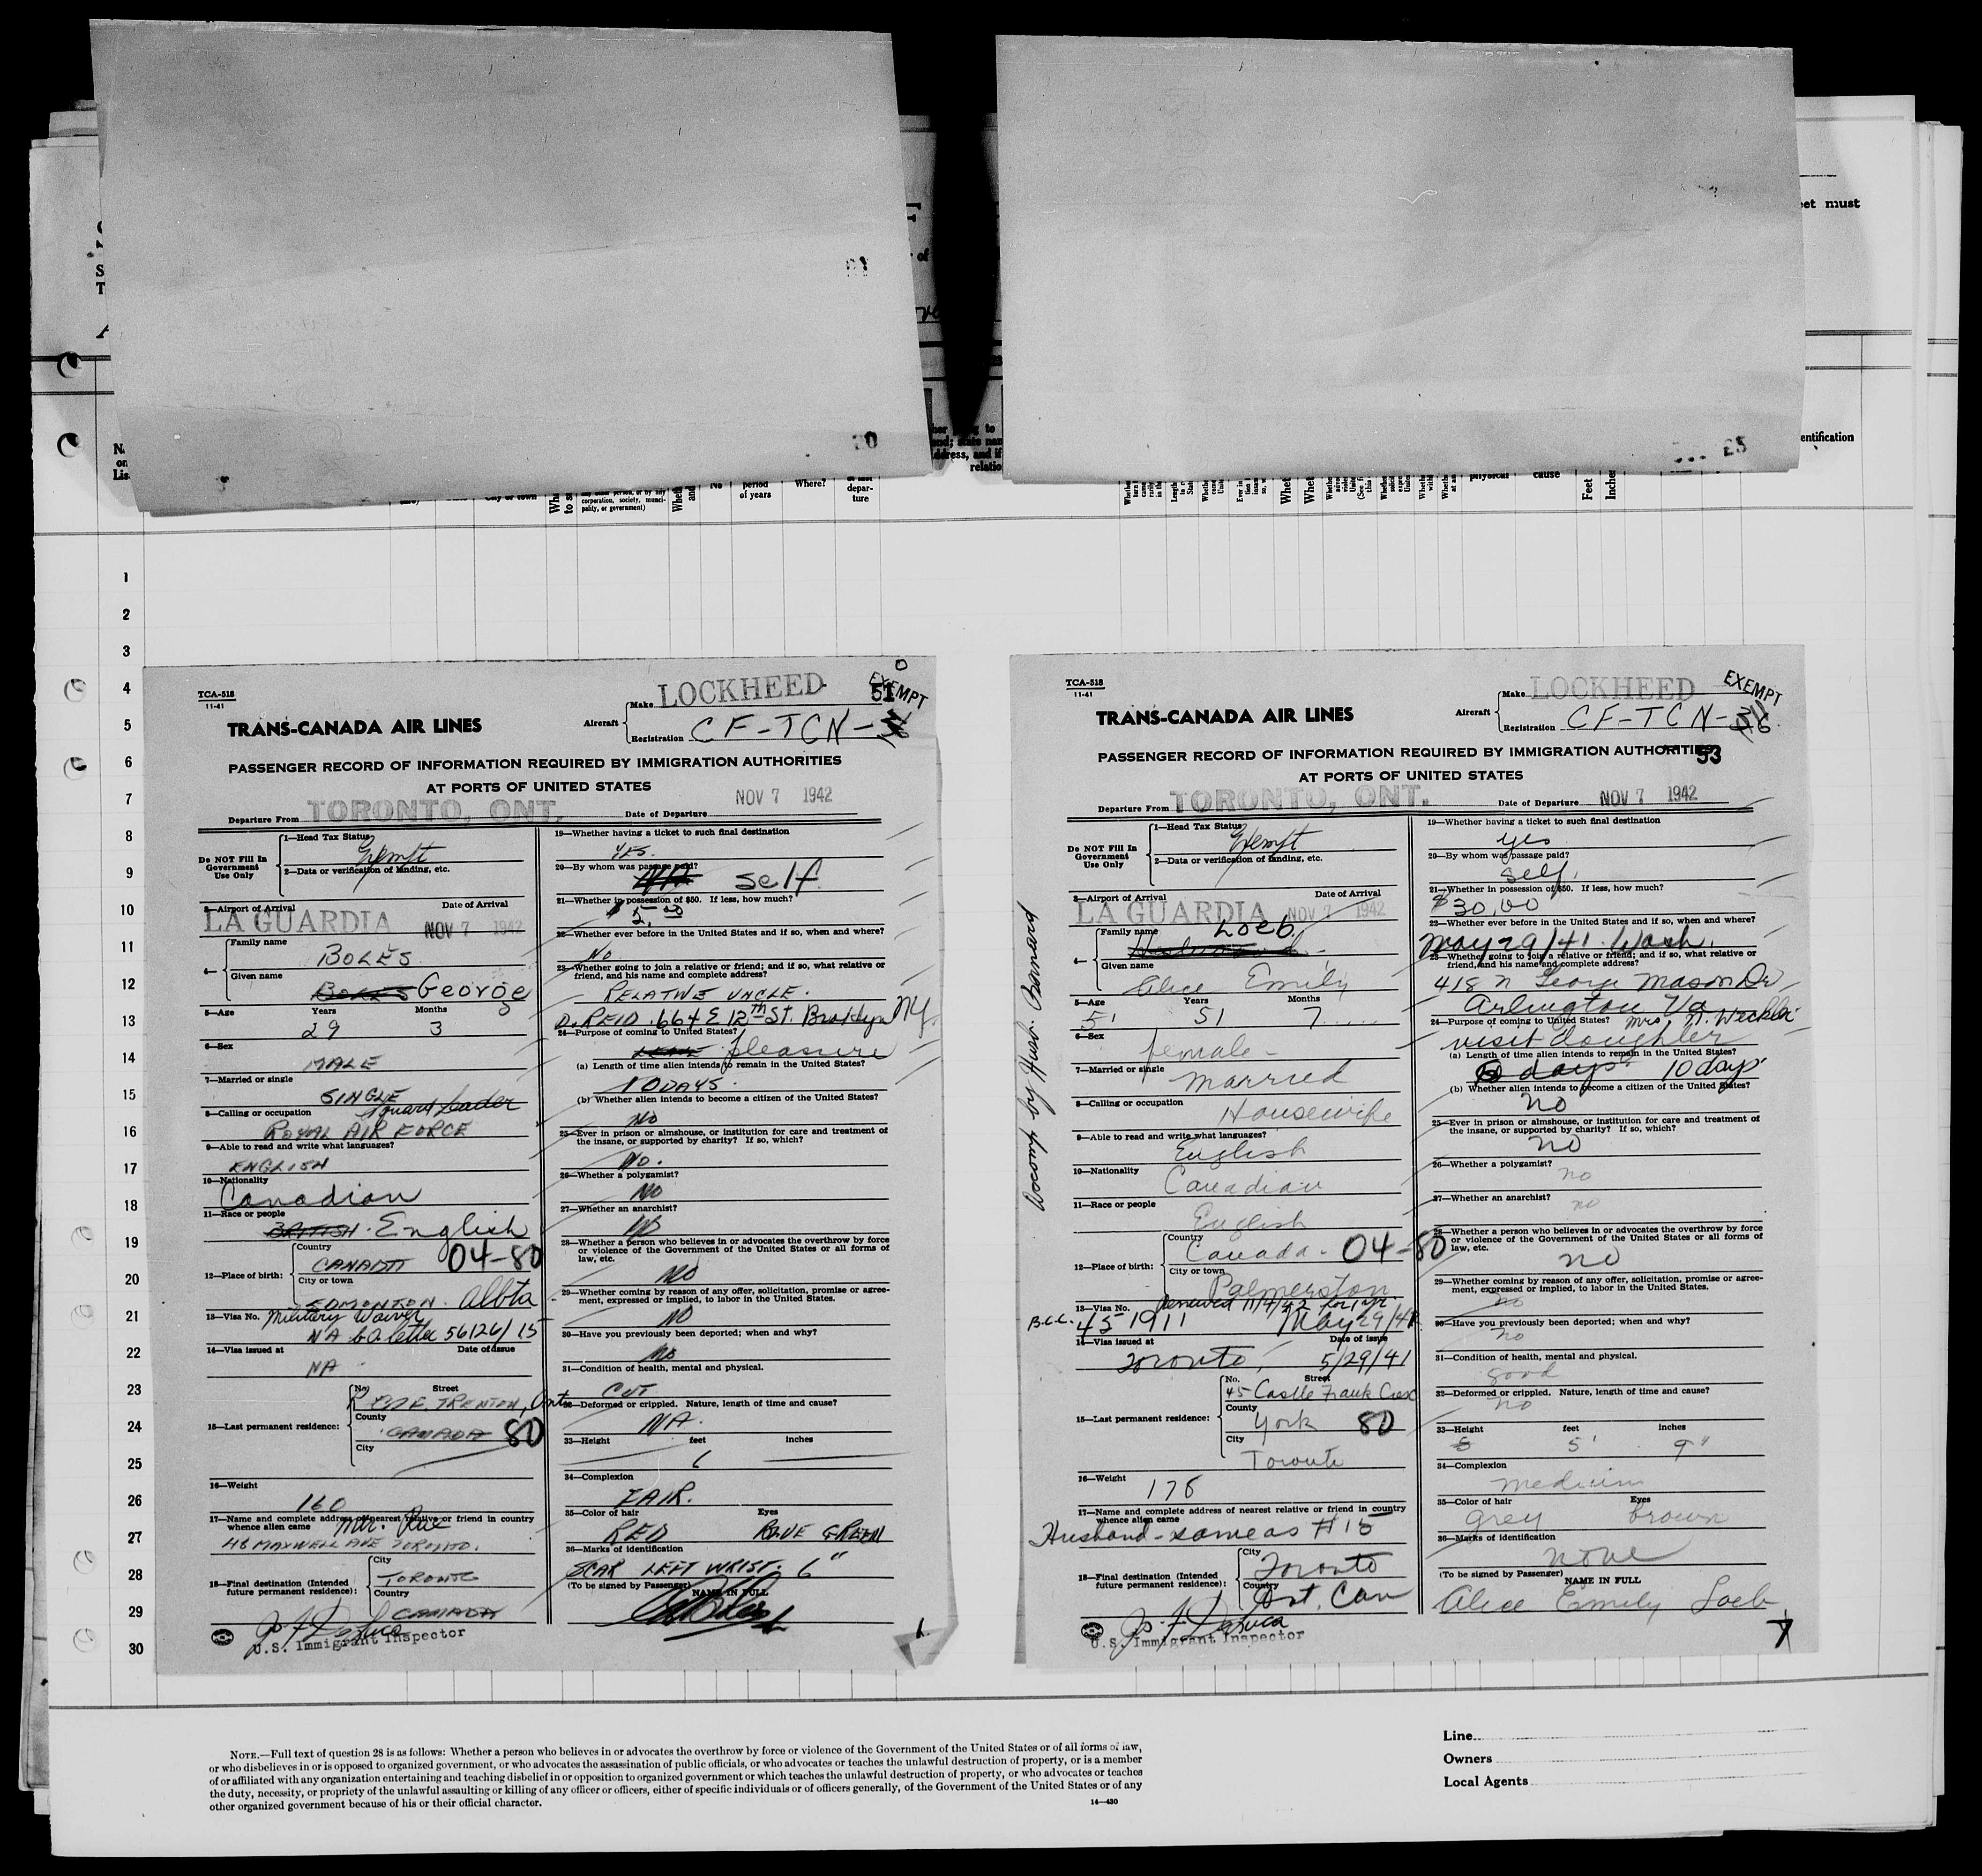 et must
entification
No
period
of years
Where?
depar-
ture
city or town
corporation, society, munici-
pality, or government)
physical
cause
Feet
Inches
1
2
3
4
5
6
7
8
9
10
11
12
13
14
15
16
17
18
19
20
21
22
23
24
25
26
27
28
29
30
TCA-518
11-41
TRANS-CANADA AIR LINES
Aircraft
Make LOCKHEED
EXEMPT
51
Registration CF-TCN-
PASSENGER RECORD OF INFORMATION REQUIRED BY IMMIGRATION AUTHORITIES
AT PORTS OF UNITED STATES
Departure From TORONTO, ONT. Date of Departure NOV 7 1942
Do NOT Fill In
Government
Use Only
1—Head Tax Status
Exempt
2—Data or verification of landing, etc.
3—Airport of Arrival Date of Arrival
LA GUARDIA NOV 7 1942
4— Family name
BOLES
Given name
BOLES George
5—Age Years Months
29 3
6—Sex
MALE
7—Married or single
SINGLE
8—Calling or occupation Squard Leader
ROYAL AIR FORCE
9—Able to read and write what languages?
ENGLISH
10—Nationality
Canadian
11—Race or people
BRITISH. English
12—Place of birth:
Country
CANADA 04-80
City or town
EDMONTON. Albta
13—Visa No. Military Waiver
NA 62 letter 56126/15
14—Visa issued at Date of issue
NA
15—Last permanent residence:
No. Street
TRENTON, Ont
County
CANADA 80
City
16—Weight
160
17—Name and complete address of nearest relative or friend in country
whence alien came Mr. Rue
48 MAXWELL AVE TORONTO.
18—Final destination (Intended
future permanent residence):
City
TORONTO
Country
CANADA
U.S. Immigrant Inspector
19—Whether having a ticket to such final destination
YES.
20—By whom was passage paid?
self
21—Whether in possession of $50. If less, how much?
$5.00
22—Whether ever before in the United States and if so, when and where?
No
23—Whether going to join a relative or friend; and if so, what relative or
friend, and his name and complete address?
RELATIVE UNCLE.
D. REID. 664 E 12th St. Broklyn NY.
24—Purpose of coming to United States?
LEAVE pleasure
(a) Length of time alien intends to remain in the United States?
10 DAYS.
(b) Whether alien intends to become a citizen of the United States?
NO
25—Ever in prison or almshouse, or institution for care and treatment of
the insane, or supported by charity? If so, which?
No.
26—Whether a polygamist?
NO
27—Whether an anarchist?
NO
28—Whether a person who believes in or advocates the overthrow by force
or violence of the Government of the United States or all forms of
law, etc.
NO
29—Whether coming by reason of any offer, solicitation, promise or agree-
ment, expressed or implied, to labor in the United States.
NO
30—Have you previously been deported; when and why?
NO
31—Condition of health, mental and physical.
32—Deformed or crippled. Nature, length of time and cause?
NA.
33—Height feet inches
6
34—Complexion
FAIR.
35—Color of hair Eyes
RED BLUE GREEN
36—Marks of identification
SCAR LEFT WRIST. 6"
(To be signed by Passenger) NAME IN FULL
TCA-518
11-41
TRANS-CANADA AIR LINES
Aircraft
Make LOCKHEED
EXEMPT
Registration CF-TCN-
PASSENGER RECORD OF INFORMATION REQUIRED BY IMMIGRATION AUTHORITIES
53
AT PORTS OF UNITED STATES
Departure From TORONTO, ONT. Date of Departure NOV 7 1942
Do NOT Fill In
Government
Use Only
1—Head Tax Status
Exempt
2—Data or verification of landing, etc.
3—Airport of Arrival Date of Arrival
LA GUARDIA NOV 7 1942
Accomp by Husb. Bernard
4— Family name
Loeb
Given name
Alice Emily
5—Age Years Months
51 51 7
6—Sex
female
7—Married or single
married
8—Calling or occupation
Housewife
9—Able to read and write what languages?
English
10—Nationality
Canadian
11—Race or people
English
12—Place of birth:
Country
Canada - 04-80
City or town
Palmerston
13—Visa No. Renewed 11/7/42 for 1 yr.
B.C.C. 451911 May 29/41
14—Visa issued at Date of issue
Toronto, 5/29/41
15—Last permanent residence:
No. Street
45 Castle Frank Cres
County
York 80
City
Toronto
16—Weight
178
17—Name and complete address of nearest relative or friend in country
whence alien came
Husband - same as #15
18—Final destination (Intended
future permanent residence):
City
Toronto
Country
Ont. Can
U.S. Immigrant Inspector
19—Whether having a ticket to such final destination
yes
20—By whom was passage paid?
self.
21—Whether in possession of $50. If less, how much?
$30.00
22—Whether ever before in the United States and if so, when and where?
May 29/41. Wash.
23—Whether going to join a relative or friend; and if so, what relative or
friend, and his name and complete address?
418 N George Mason Dr
Arlington Va
24—Purpose of coming to United States? Mrs. H. Weckler
visit daughter
(a) Length of time alien intends to remain in the United States?
days 10 days
(b) Whether alien intends to become a citizen of the United States?
no
25—Ever in prison or almshouse, or institution for care and treatment of
the insane, or supported by charity? If so, which?
no
26—Whether a polygamist?
no
27—Whether an anarchist?
no
28—Whether a person who believes in or advocates the overthrow by force
or violence of the Government of the United States or all forms of
law, etc.
no
29—Whether coming by reason of any offer, solicitation, promise or agree-
ment, expressed or implied, to labor in the United States.
no
30—Have you previously been deported; when and why?
no
31—Condition of health, mental and physical.
good
32—Deformed or crippled. Nature, length of time and cause?
no
33—Height feet inches
5 5' 9"
34—Complexion
medium
35—Color of hair Eyes
grey brown
36—Marks of identification
none
(To be signed by Passenger) NAME IN FULL
Alice Emily Loeb
NOTE.—Full text of question 28 is as follows: Whether a person who believes in or advocates the overthrow by force or violence of the Government of the United States or of all forms of law,
or who disbelieves in or is opposed to organized government, or who advocates the assassination of public officials, or who advocates or teaches the unlawful destruction of property, or is a member
of or affiliated with any organization entertaining and teaching disbelief in or opposition to organized government or which teaches the unlawful destruction of property, or who advocates or teaches
the duty, necessity, or propriety of the unlawful assaulting or killing of any officer or officers, either of specific individuals or of officers generally, of the Government of the United States or of any
other organized government because of his or their official character.
14—430
Line
Owners
Local Agents